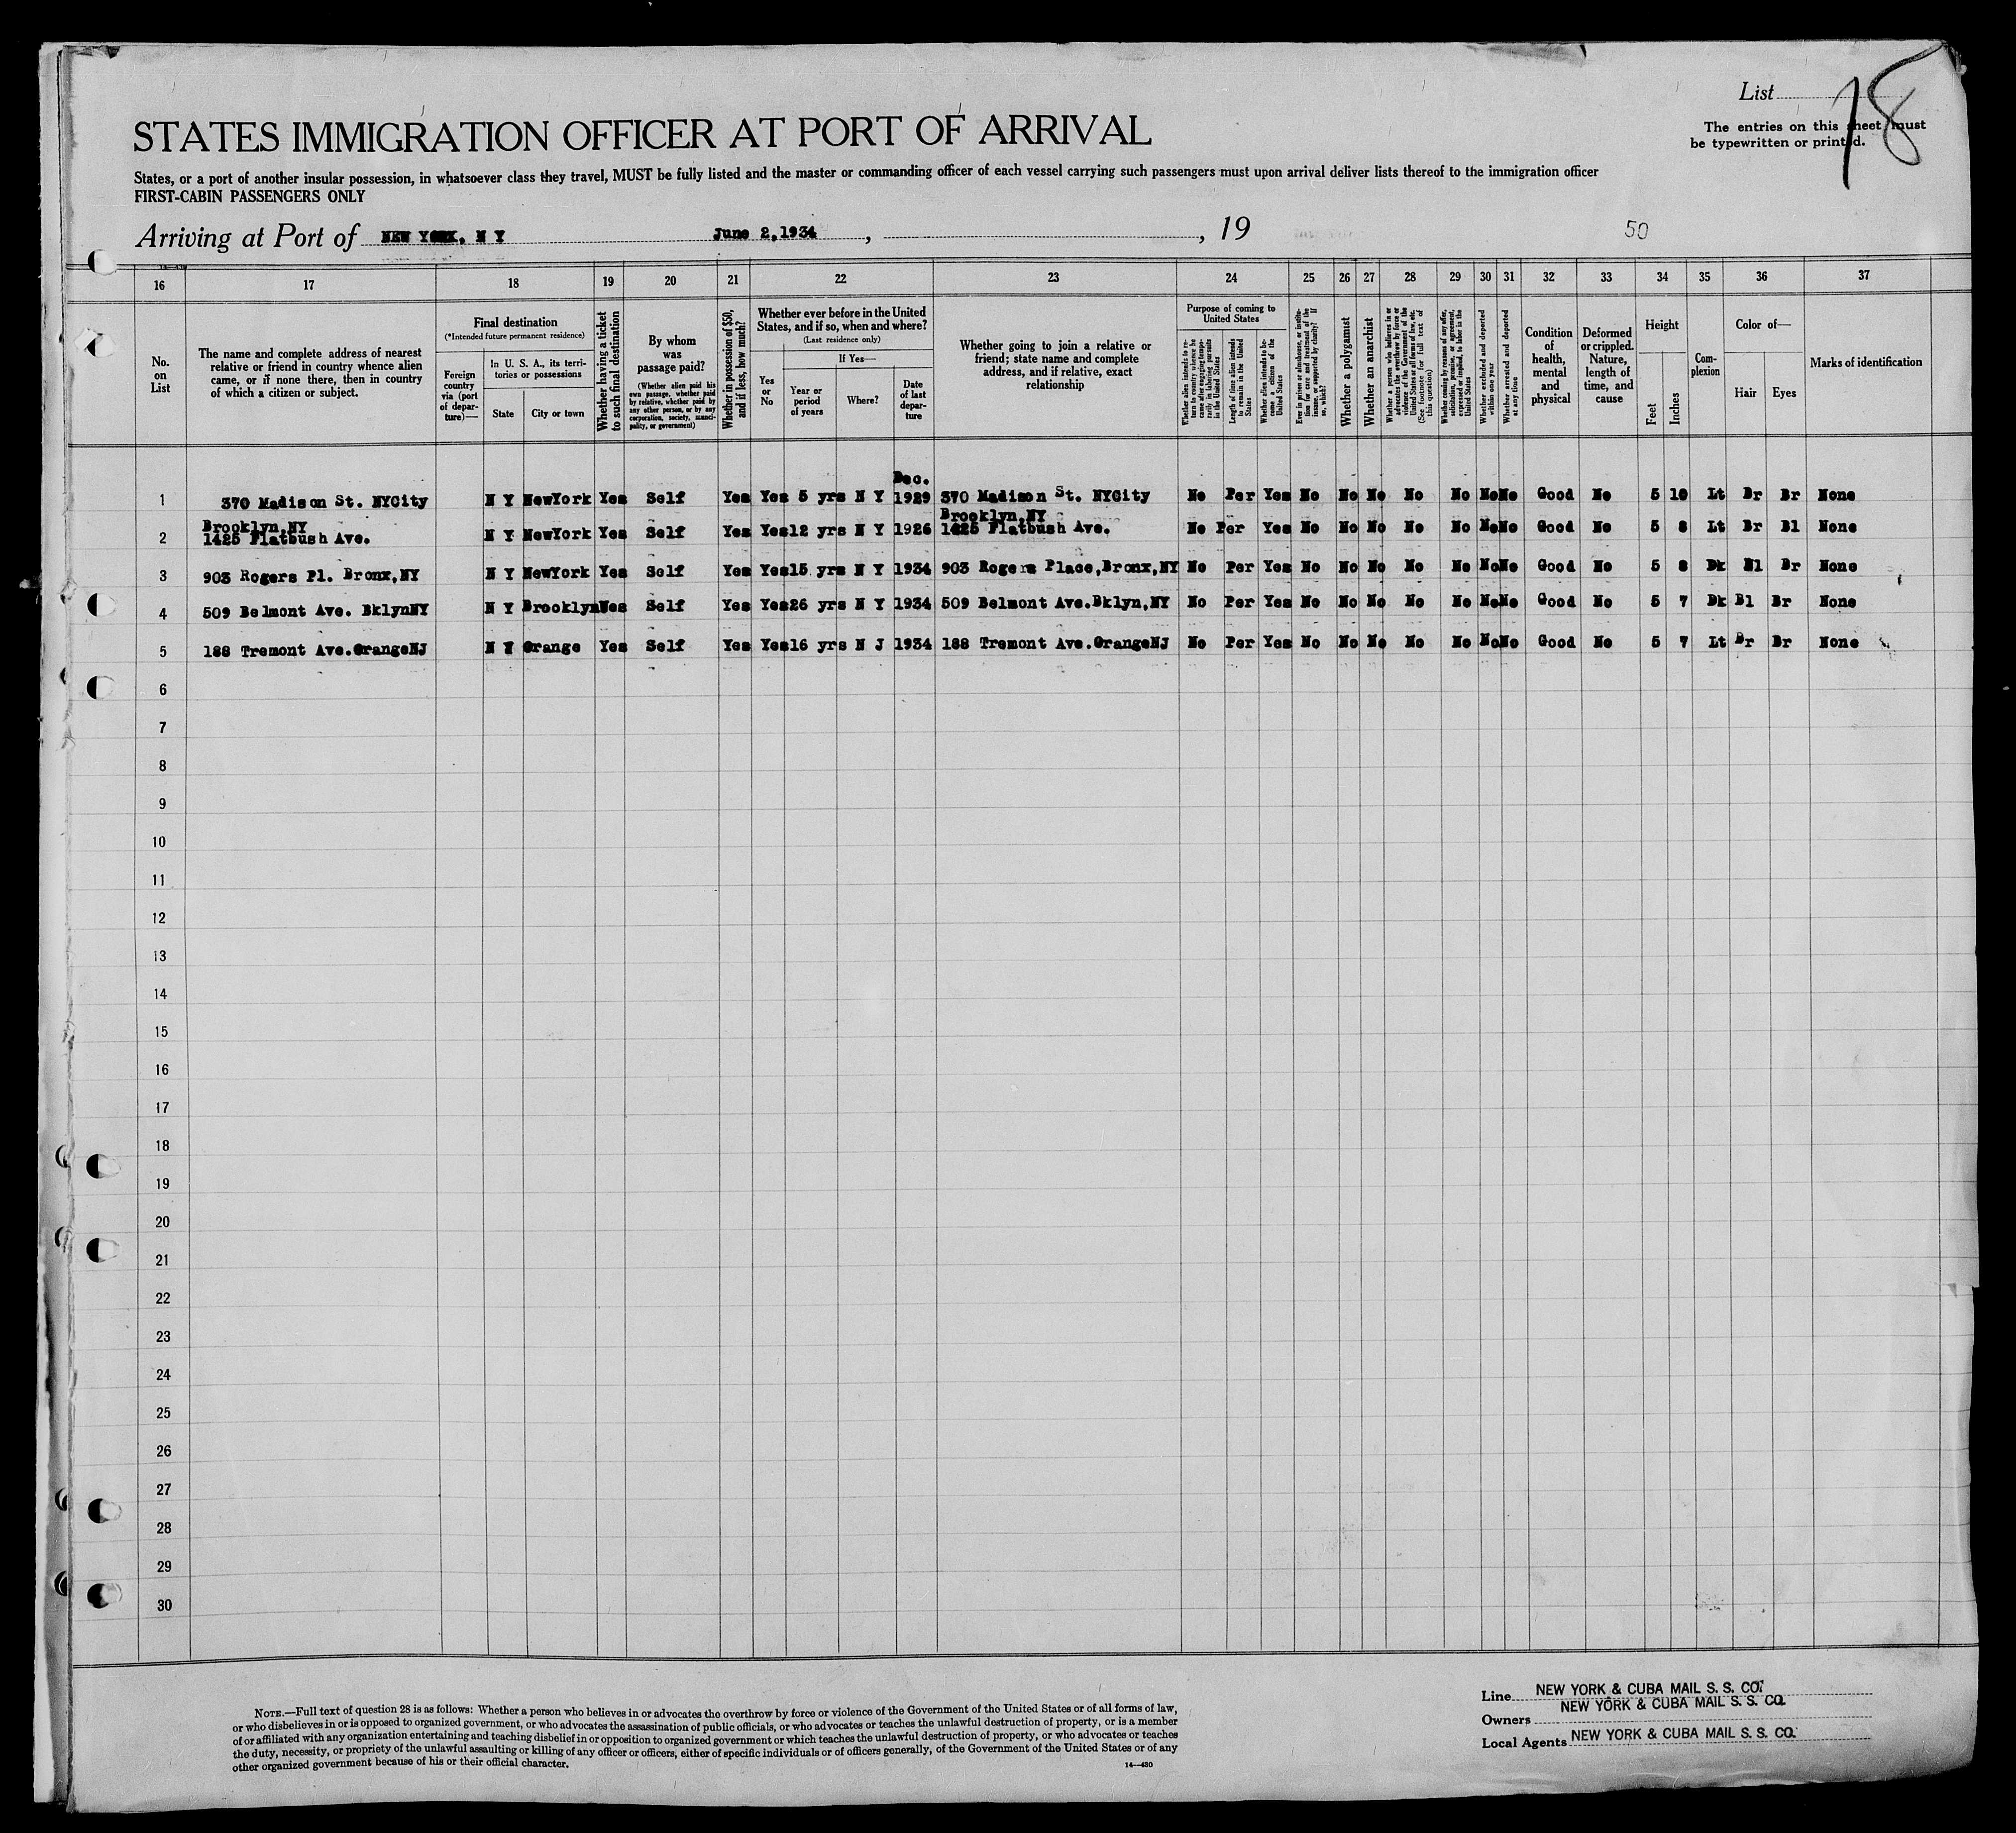 List 18
The entries on this sheet must
be typewritten or printed.
STATES IMMIGRATION OFFICER AT PORT OF ARRIVAL
States, or a port of another insular possession, in whatsoever class they travel, MUST be fully listed and the master or commanding officer of each vessel carrying such passengers must upon arrival deliver lists thereof to the immigration officer
FIRST-CABIN PASSENGERS ONLY
Arriving at Port of NEW YORK, N Y June 2,1934, , 19 50
16 17 18 19 20 21 22 23 24 25 26 27 28 29 30 31 32 33 34 35 36 37
No.
on
List
The name and complete address of nearest
relative or friend in country whence alien
came, or if none there, then in country
of which a citizen or subject.
Final destination
(*Intended future permanent residence)
Foreign
country
via (port
of depar-
ture)—
In U. S. A., its terri-
tories or possessions
State
City or town
Whether having a ticket
to such final destination
By whom
was
passage paid?
(Whether alien paid his
own passage, whether paid
by relative, whether paid by
any other person, or by any
corporation, society, munici-
pality, or government)
Whether in possession of $50,
and if less, how much?
Whether ever before in the United
States, and if so, when and where?
(Last residence only)
Yes
or
No
If Yes—
Year or
period
of years
Where?
Date
of last
depar-
ture
Whether going to join a relative or
friend; state name and complete
address, and if relative, exact
relationship
Purpose of coming to
United States
Whether alien intends to re-
turn to country whence he
came after engaging tempo-
rarily in laboring pursuits
in the United States
Length of time alien intends
to remain in the United
States
Whether alien intends to be-
come a citizen of the
United States
Ever in prison or almshouse, or institu-
tion for care and treatment of the
insane, or supported by charity? If
so, which?
Whether a polygamist
Whether an anarchist
Whether a person who believes in or
advocates the overthrow by force or
violence of the Government of the
United States or all forms of law, etc.
(See footnote for full text of
this question)
Whether coming by reason of any offer,
solicitation, promise, or agreement,
expressed or implied, to labor in the
United States
Whether excluded and deported
within one year
Whether arrested and deported
at any time
Condition
of
health,
mental
and
physical
Deformed
or crippled.
Nature,
length of
time, and
cause
Height
Feet
Inches
Com-
plexion
Color of—
Hair
Eyes
Marks of identification
Dec.
1 370 Madison St. NYCity N Y NewYork Yes Self Yes Yes 5 yrs N Y 1929 370 Madison St. NYCity No Per Yes No No No No No No No Good No 5 10 Lt Br Br None
Brooklyn,NY Brooklyn,NY
2 1425 Flatbush Ave. N Y NewYork Yes Self Yes Yes 12 yrs N Y 1926 1425 Flatbush Ave. No Per Yes No No No No No No No Good No 5 8 Lt Br Bl None
3 903 Rogers Pl. Bronx,NY N Y NewYork Yes Self Yes Yes 15 yrs N Y 1934 903 Rogers Place,Bronx,NY No Per Yes No No No No No No No Good No 5 8 Dk Bl Br None
4 509 Belmont Ave. BklynNY N Y Brooklyn Yes Self Yes Yes 26 yrs N Y 1934 509 Belmont Ave.Bklyn,NY No Per Yes No No No No No No No Good No 5 7 Dk Bl Br None
5 188 Tremont Ave.OrangeNJ N Y Orange Yes Self Yes Yes 16 yrs N J 1934 188 Tremont Ave.OrangeNJ No Per Yes No No No No No No No Good No 5 7 Lt Br Br None
6
7
8
9
10
11
12
13
14
15
16
17
18
19
20
21
22
23
24
25
26
27
28
29
30
NOTE.—Full text of question 28 is as follows: Whether a person who believes in or advocates the overthrow by force or violence of the Government of the United States or of all forms of law,
or who disbelieves in or is opposed to organized government, or who advocates the assassination of public officials, or who advocates or teaches the unlawful destruction of property, or is a member
of or affiliated with any organization entertaining and teaching disbelief in or opposition to organized government or which teaches the unlawful destruction of property, or who advocates or teaches
the duty, necessity, or propriety of the unlawful assaulting or killing of any officer or officers, either of specific individuals or of officers generally, of the Government of the United States or of any
other organized government because of his or their official character.
14—430
Line NEW YORK & CUBA MAIL S. S. CO.
Owners NEW YORK & CUBA MAIL S. S. CO.
Local Agents NEW YORK & CUBA MAIL S. S. CO.